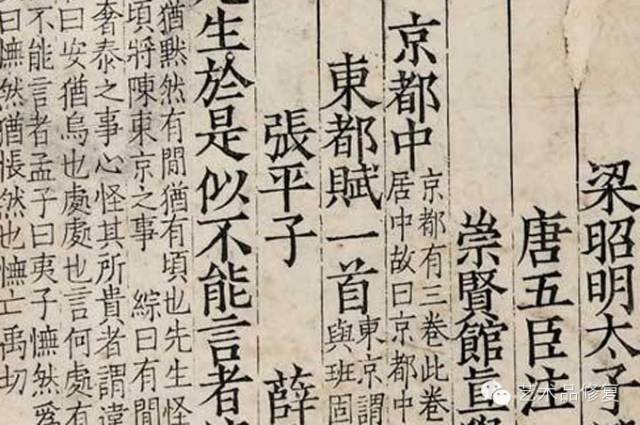 梁昭明太子
唐五臣注
崇賢館直
京都中
京都有三卷此卷
居中故曰京都中
東都賦一首
東京謂
與班固
張平子 薛
生於是似不能言者
猶黙然有間猶有頃也先生怪
頃將陳東京之事 綜曰有間
奢泰之事心怪其所貴者謂違
曰安猶烏也處處也言何處有
不能言者孟子曰夷子憮然爲
曰憮然猶悵然也憮亡禹切
艺术品修复